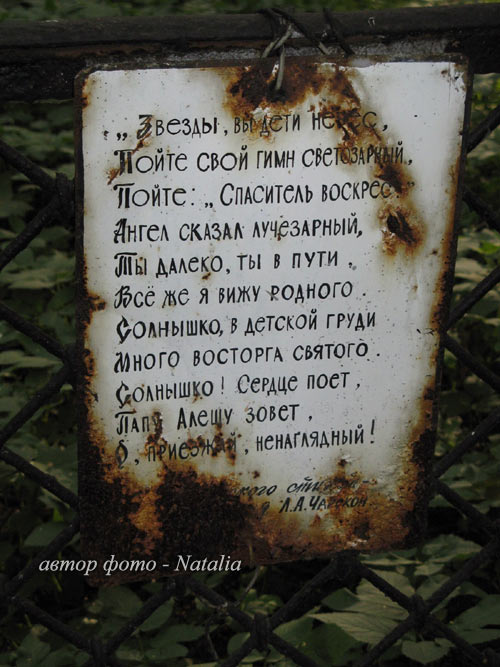 „Звезды, вы дети небес,
Пойте свой гимн светозарный,
Пойте: „Спаситель воскрес!"
Ангел сказал лучезарный,
Ты далеко, ты в пути,
Всё же я вижу родного
Солнышко, в детской груди
Много восторга святого.
Солнышко! Сердце поет,
Папу Алешу зовет,
О, приезжай, ненаглядный!
Л.А. Чарской
автор фото - Natalia